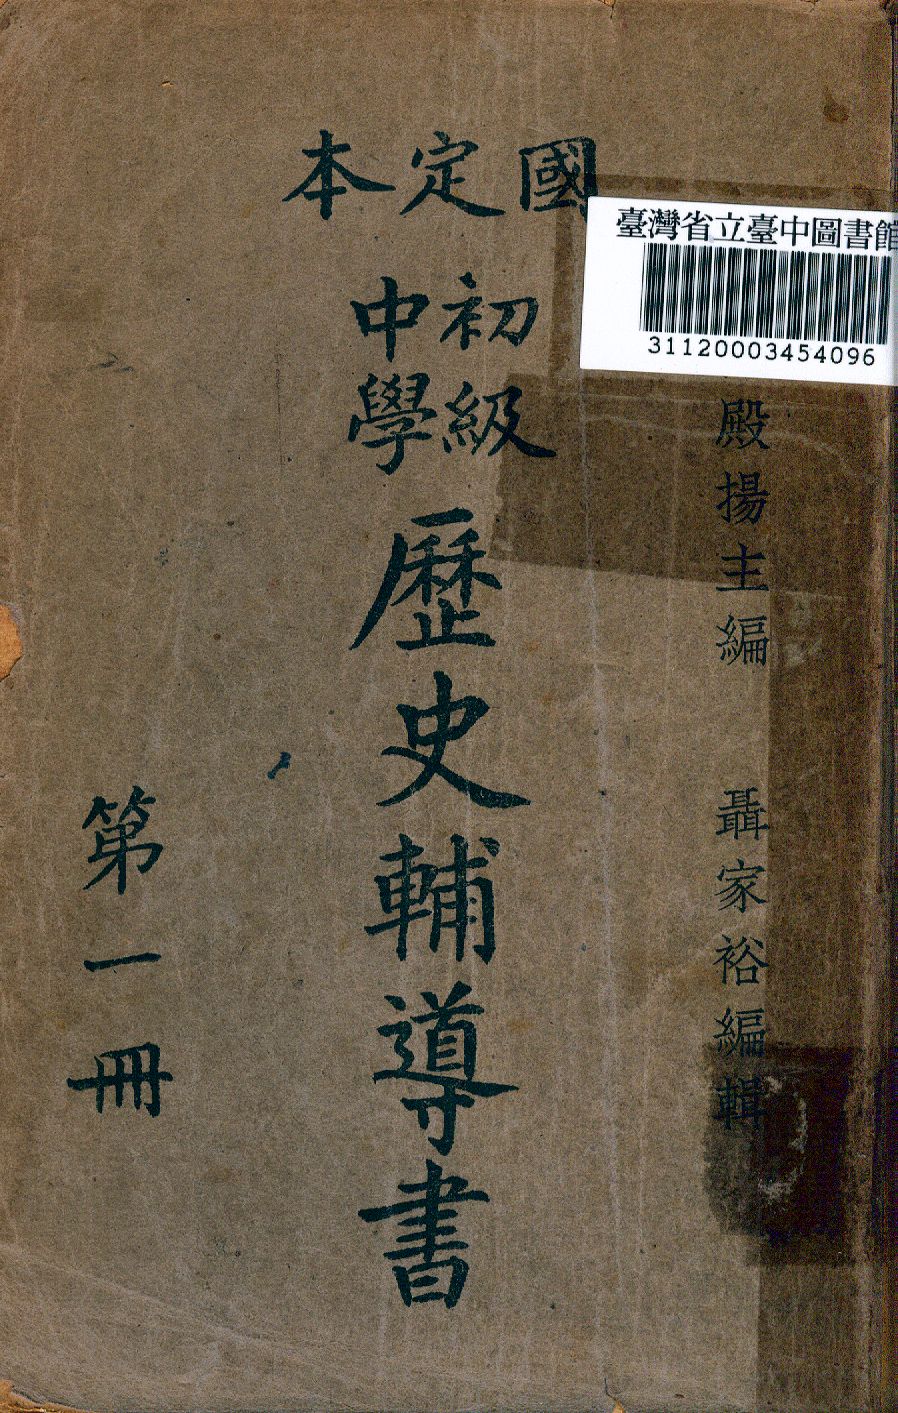 國定本
初級
中學
歷史輔導書
第一冊
殿揚主編
聶家裕編輯
臺灣省立臺中圖書館
31120003454096